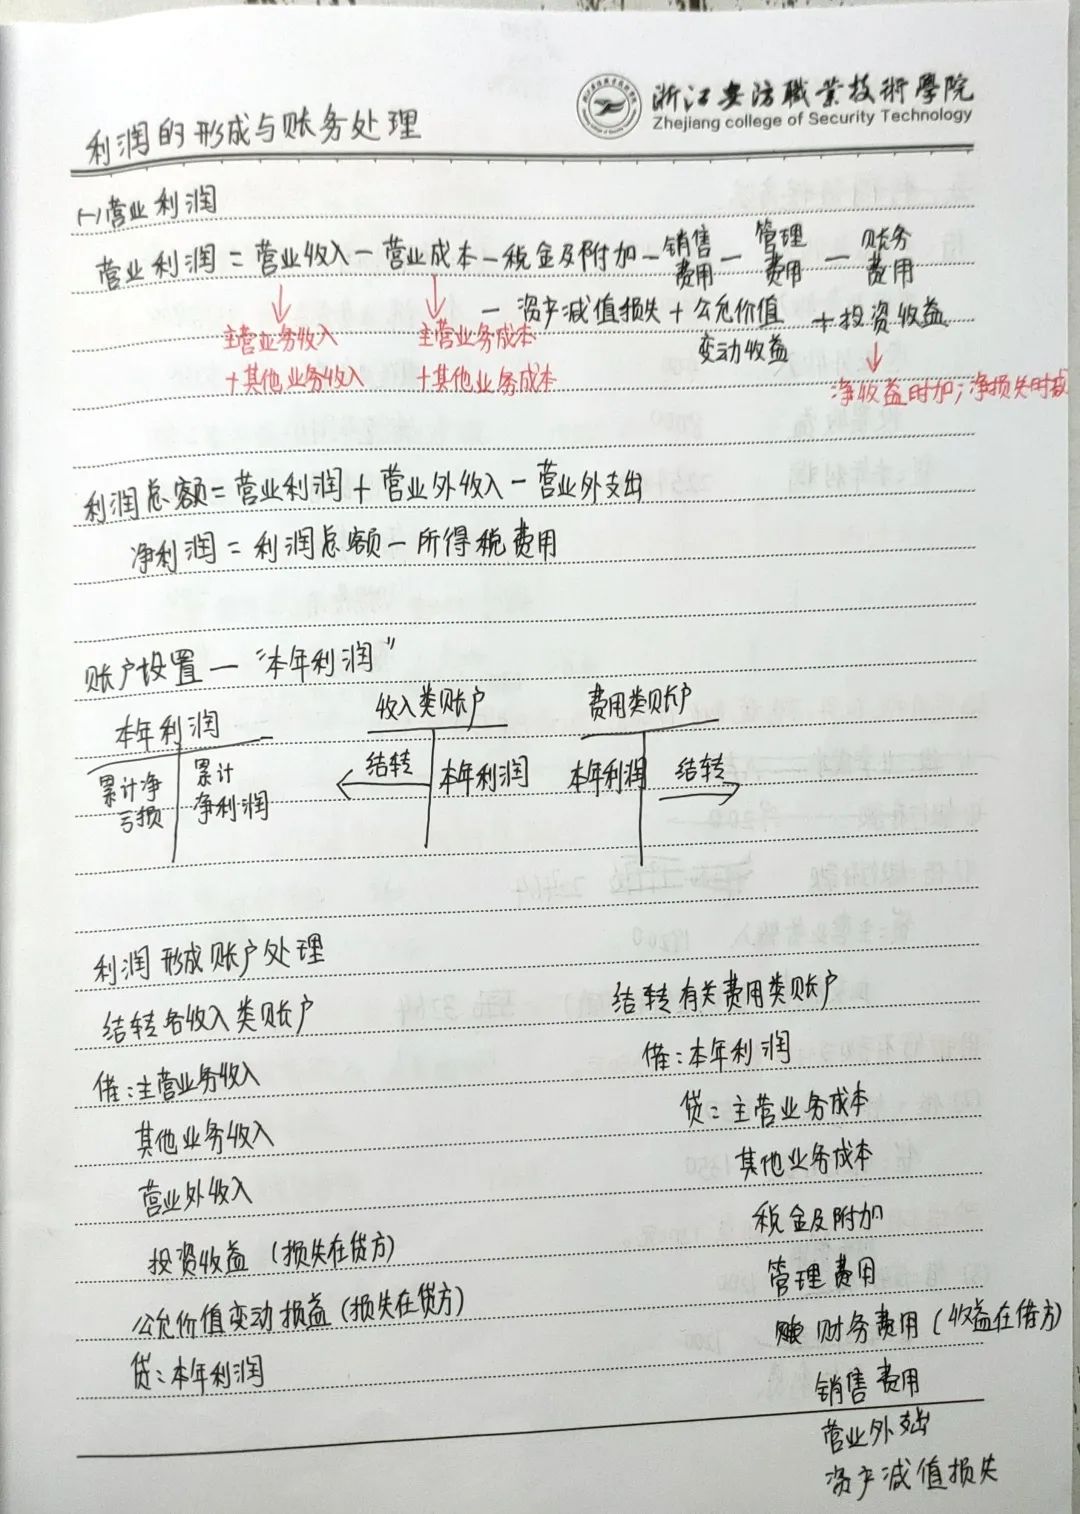 浙江安防職業技術學院
Zhejiang college of Security Technology
利润的形成与账务处理
(一)营业利润
营业利润=营业收入-营业成本-税金及附加-销售费用-管理费用-账务费用
-资产减值损失+公允价值变动收益+投资收益
主营业务收入
+其他业务收入
主营业务成本
+其他业务成本
净收益时加;净损失时减
利润总额=营业利润+营业外收入-营业外支出
净利润=利润总额-所得税费用
账户设置—“本年利润”
本年利润
累计净亏损
累计净利润
收入类账户
结转
本年利润
费用类账户
本年利润
结转
利润形成账户处理
结转各收入类账户
借:主营业务收入
其他业务收入
营业外收入
投资收益(损失在贷方)
公允价值变动损益(损失在贷方)
贷:本年利润
结转有关费用类账户
借:本年利润
贷:主营业务成本
其他业务成本
税金及附加
管理费用
财务费用(收益在借方)
销售费用
营业外支出
资产减值损失